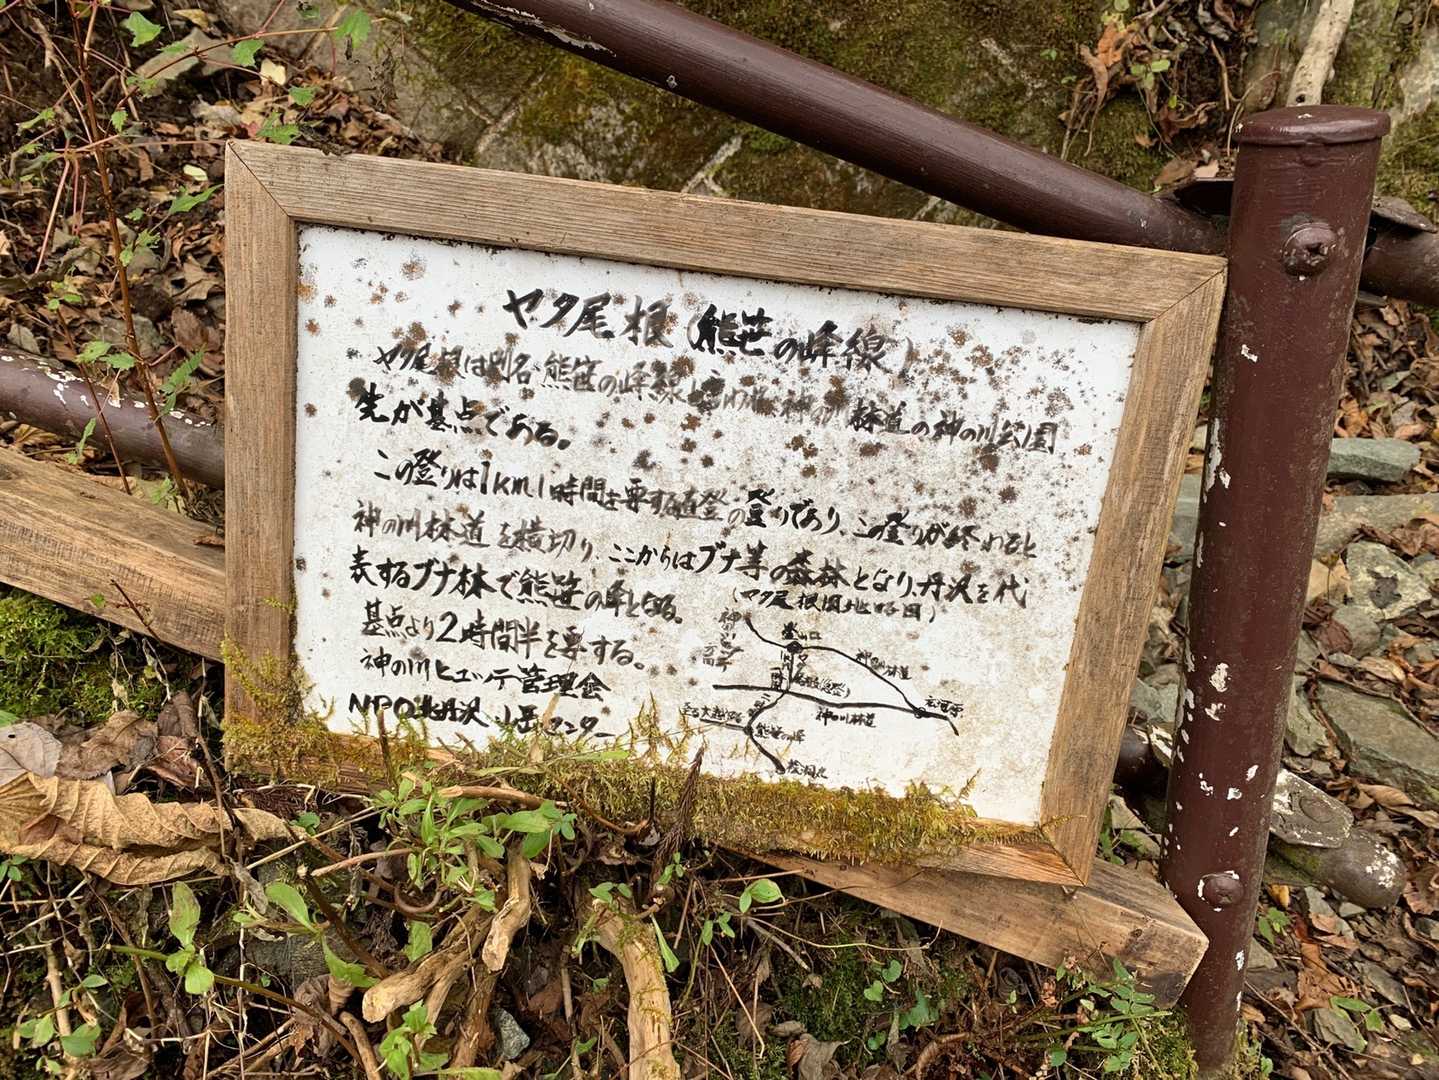 ヤタ尾根(熊笹の峰線)
ヤタ尾根は別名熊笹の峰線と云われ神の川林道の神の川公園
先が基点である。
この登りは1km1時間を要する直登の登りであり、この登りが終わると
神の川林道を横切り、ここからはブナ等の森林となり、丹沢を代
表するブナ林で熊笹の峰となる。
基点より2時間半を要する。
神の川ヒュッテ管理会
NPO北丹沢山岳センター
(ヤタ尾根周辺略図)
神の川
方面
登山口
ヤタ
尾根(直登)
神の川林道
神の川林道
至大越路
熊笹の峰
桧洞丸